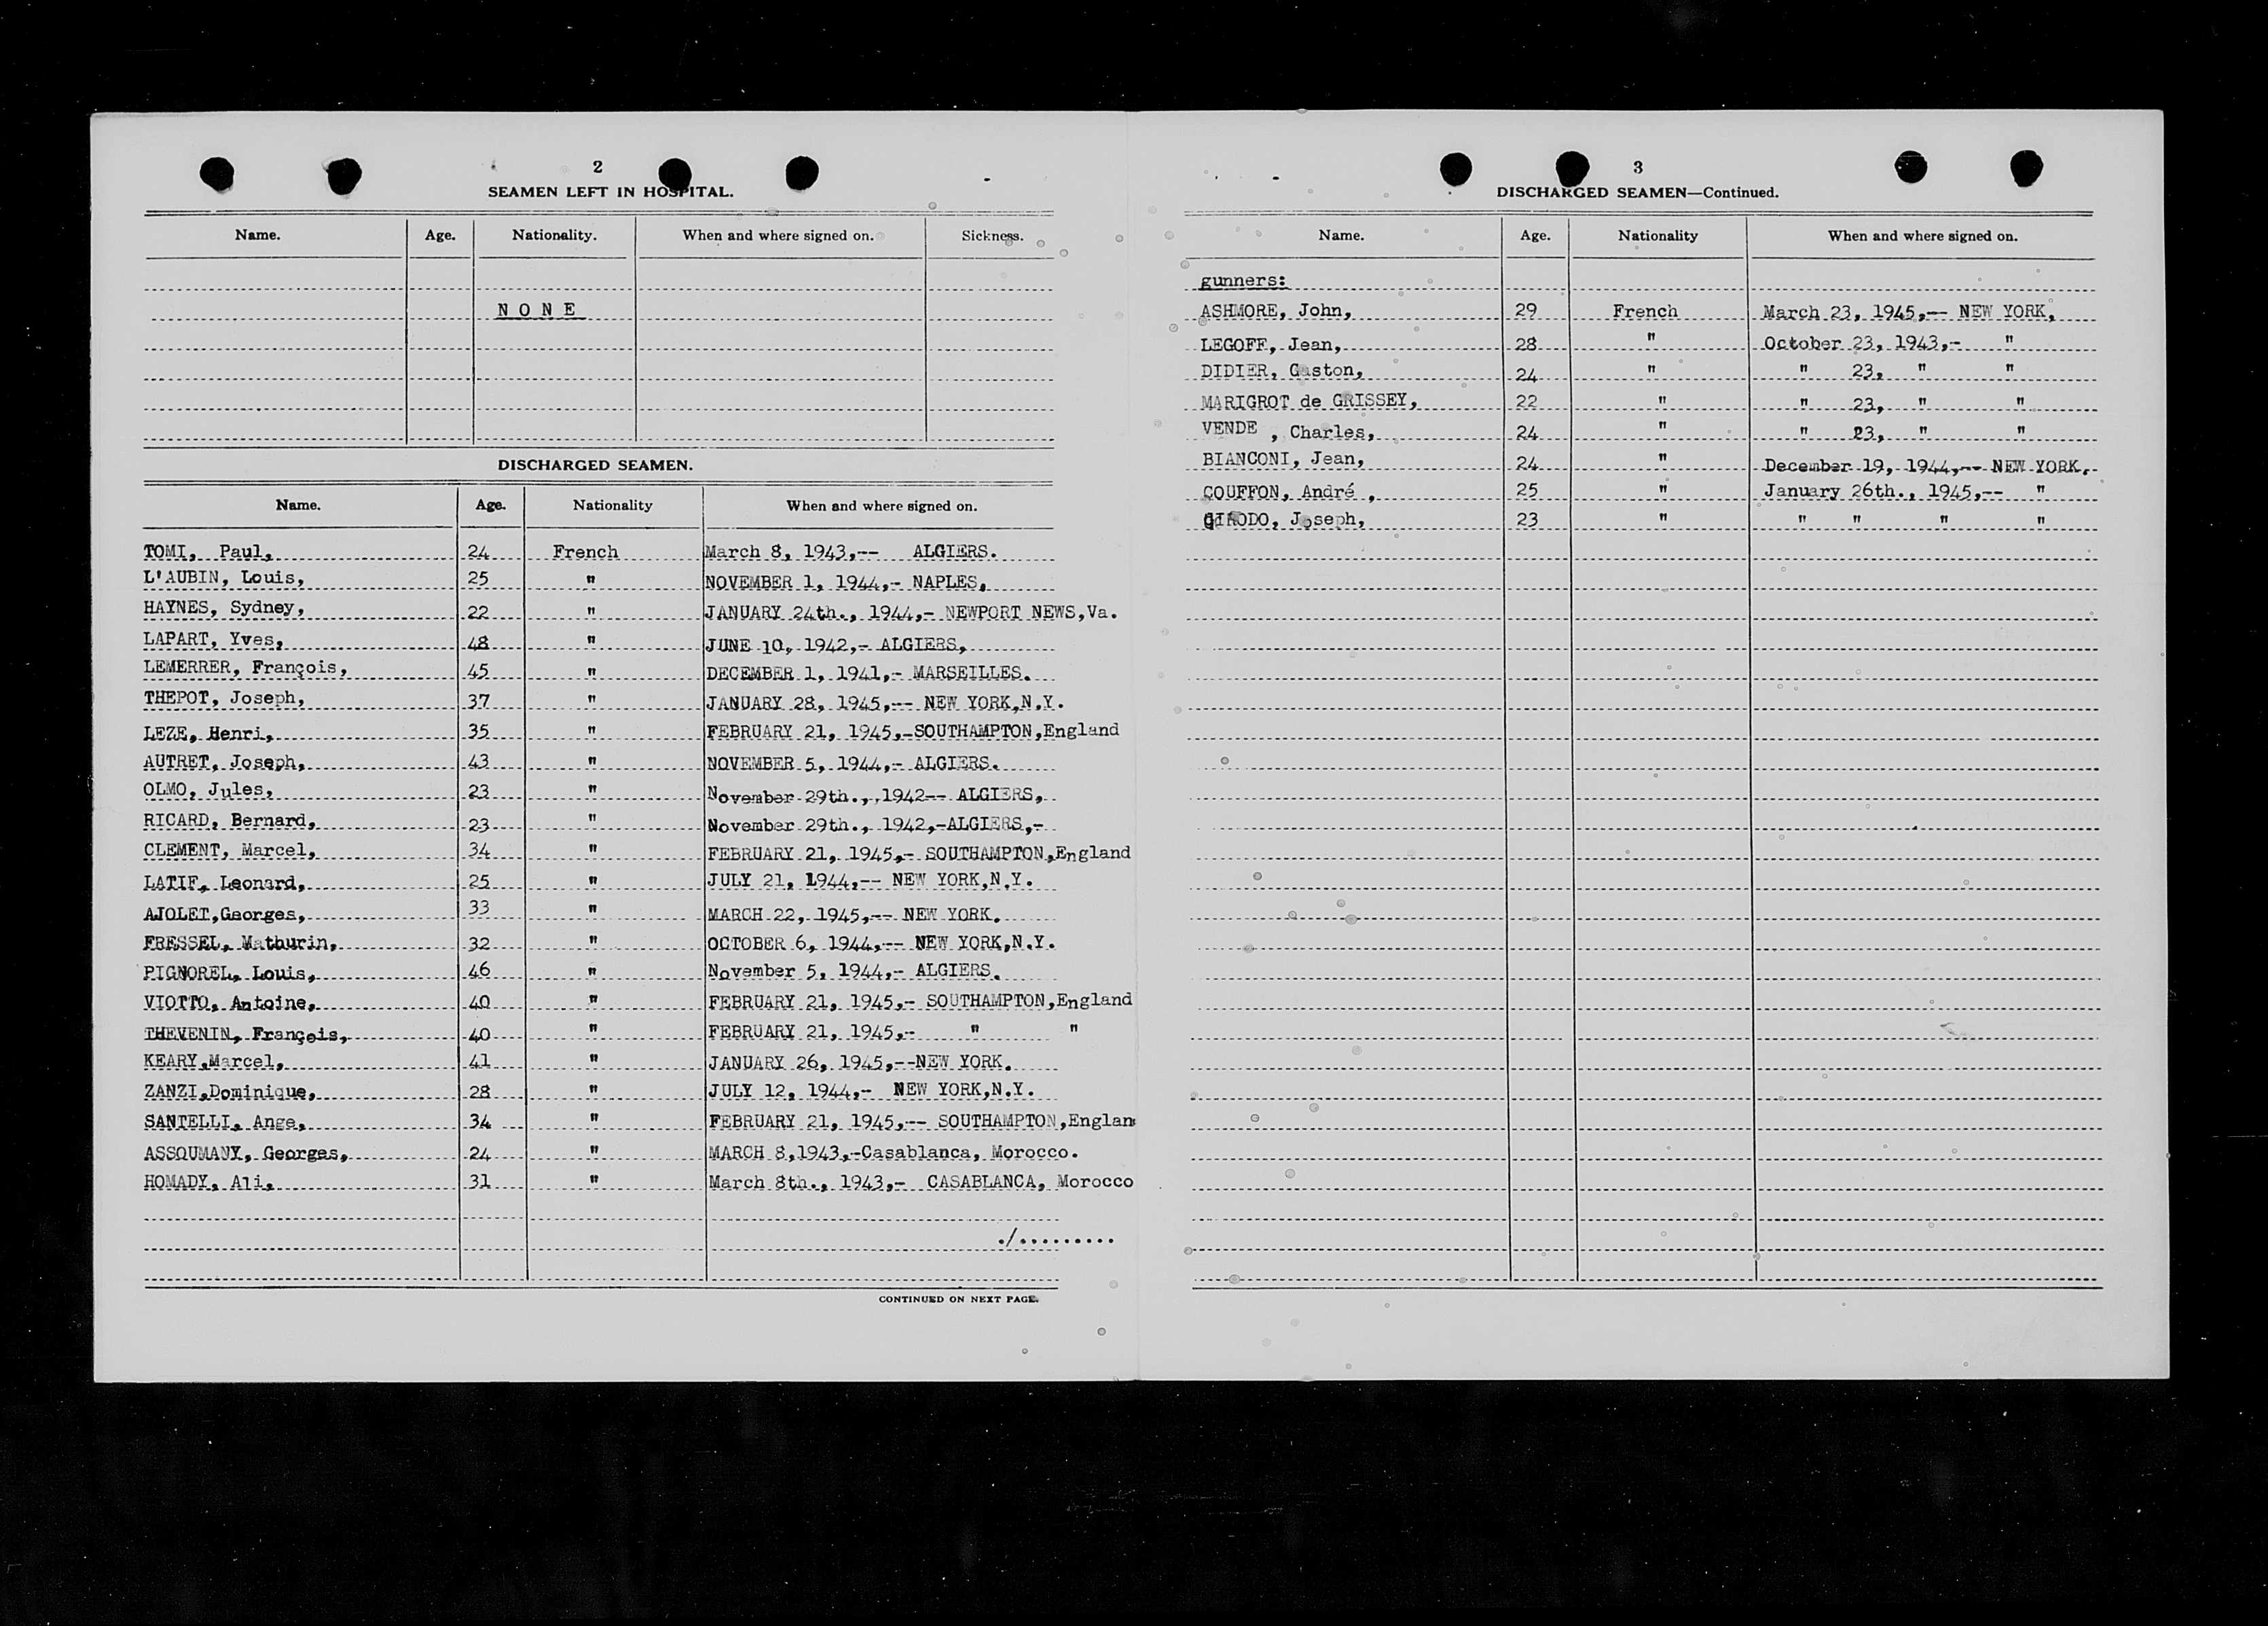 2
SEAMEN LEFT IN HOSPITAL.
Name. Age. Nationality. When and where signed on. Sickness.
NONE
DISCHARGED SEAMEN.
Name. Age. Nationality When and where signed on.
TOMI, Paul, 24 French March 8, 1943,-- ALGIERS.
L'AUBIN, Louis, 25 " NOVEMBER 1, 1944,- NAPLES,
HAYNES, Sydney, 22 " JANUARY 24th., 1944,- NEWPORT NEWS,Va.
LAPART, Yves, 48 " JUNE 10, 1942,- ALGIERS,
LEMERRER, François, 45 " DECEMBER 1, 1941,- MARSEILLES.
THEPOT, Joseph, 37 " JANUARY 28, 1945,-- NEW YORK,N.Y.
LEZE, Henri, 35 " FEBRUARY 21, 1945,-SOUTHAMPTON,England
AUTRET, Joseph, 43 " NOVEMBER 5, 1944,- ALGIERS.
OLMO, Jules, 23 " November 29th., 1942-- ALGIERS,
RICARD, Bernard, 23 " November 29th., 1942,-ALGIERS,-
CLEMENT, Marcel, 34 " FEBRUARY 21, 1945,- SOUTHAMPTON,England
LATIF, Leonard, 25 " JULY 21, 1944,-- NEW YORK,N.Y.
AJOLET,Georges, 33 " MARCH 22, 1945,-- NEW YORK.
FRESSEL, Mathurin, 32 " OCTOBER 6, 1944,-- NEW YORK,N.Y.
PIGNOREL, Louis, 46 " November 5, 1944,- ALGIERS.
VIOTTO, Antoine, 40 " FEBRUARY 21, 1945,- SOUTHAMPTON,England
THEVENIN, François, 40 " FEBRUARY 21, 1945,- " "
KEARY,Marcel, 41 " JANUARY 26, 1945,--NEW YORK.
ZANZI,Dominique, 28 " JULY 12, 1944,- NEW YORK,N.Y.
SANTELLI, Ange, 34 " FEBRUARY 21, 1945,-- SOUTHAMPTON,Englan
ASSOUMANY, Georges, 24 " MARCH 8,1943,-Casablanca, Morocco.
HOMADY, Ali, 31 " March 8th., 1943,- CASABLANCA, Morocco
./.........
CONTINUED ON NEXT PAGE.
3
DISCHARGED SEAMEN—Continued.
Name. Age. Nationality When and where signed on.
gunners:
ASHMORE, John, 29 French March 23, 1945,-- NEW YORK,
LEGOFF, Jean, 28 " October 23, 1943,- "
DIDIER, Gaston, 24 " " 23, " "
MARIGROT de GRISSEY, 22 " " 23, " "
VENDE , Charles, 24 " " 23, " "
BIANCONI, Jean, 24 " December 19, 1944,-- NEW YORK.
COUFFON, André , 25 " January 26th., 1945,-- "
GIRODO, Joseph, 23 " " " " "